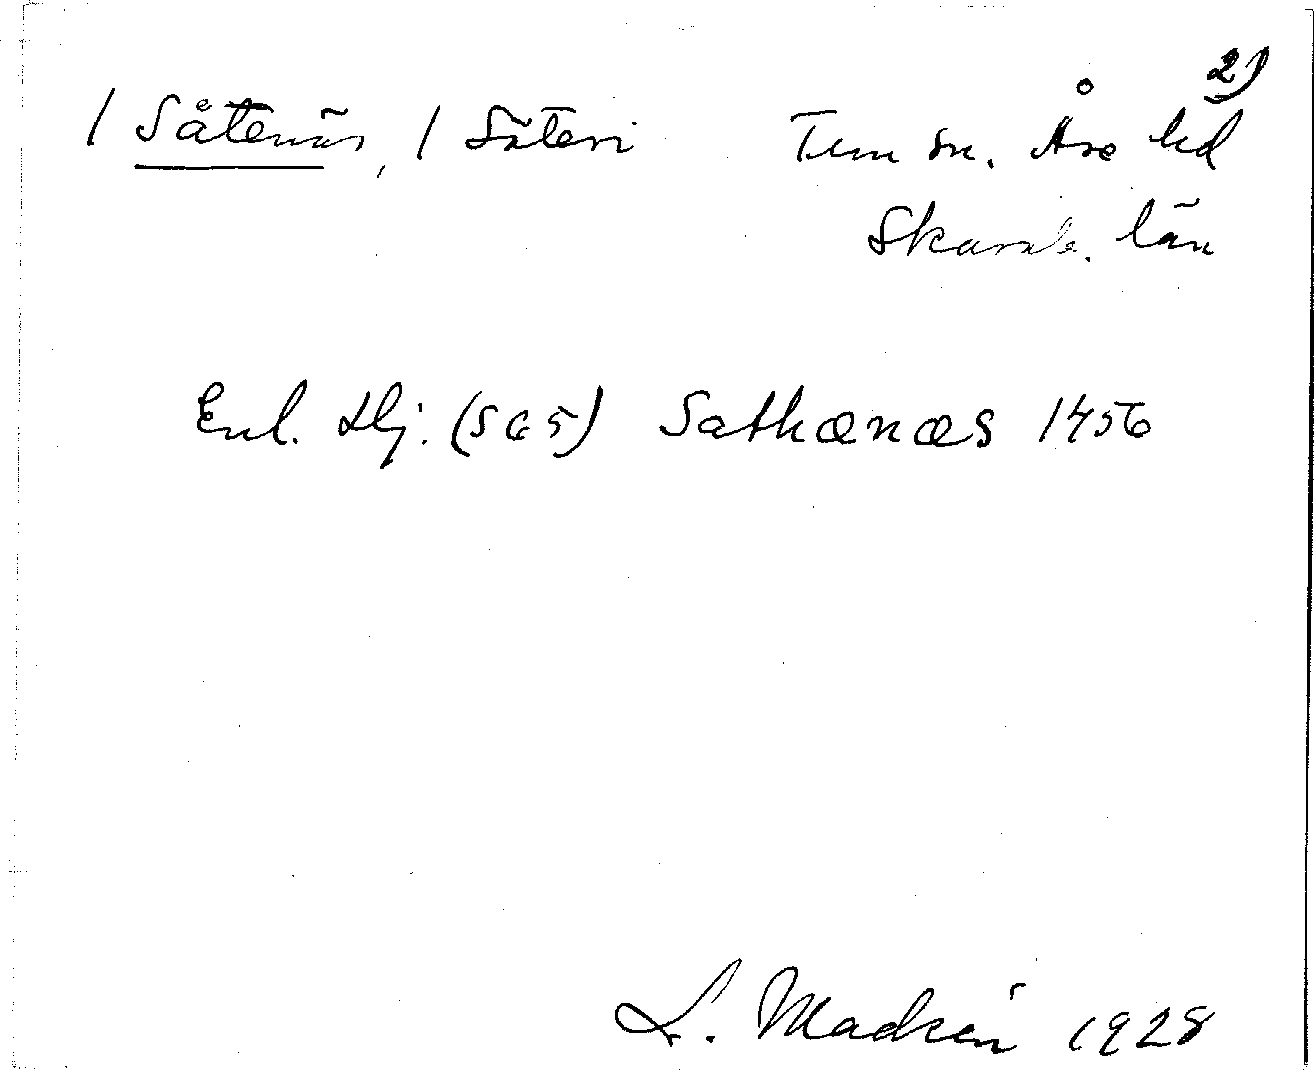 2)
/ Såtenäs, / Säteri Tun sn. Åse hd
Skarab. län
Enl. Hj. (S 65) Sathænæs 1456
L. Madsén 1928